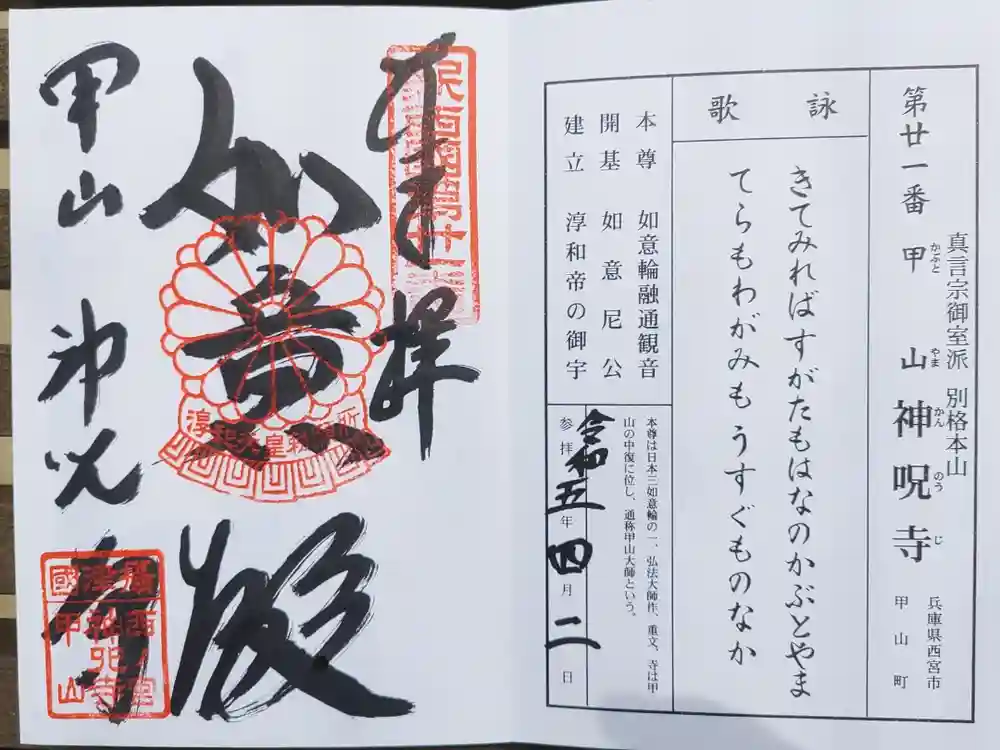 真言宗御室派 別格本山
第廿一番 甲山神呪寺
かぶと やま かん のう じ
兵庫県西宮市
甲山町
詠歌
きてみればすがたもはなのかぶとやま
てらもわがみもうすぐものなか
本尊 如意輪融通観音
開基 如意尼公
建立 淳和帝の御宇
本尊は日本三如意輪の一、弘法大師作、重文、寺は甲
山の中復に位し、通称甲山大師という。
参拝 令和五年四月二日
奉拝
如意殿
淳和天皇勅願所
甲山 神呪寺
攝津西宮
國
甲山
神呪寺